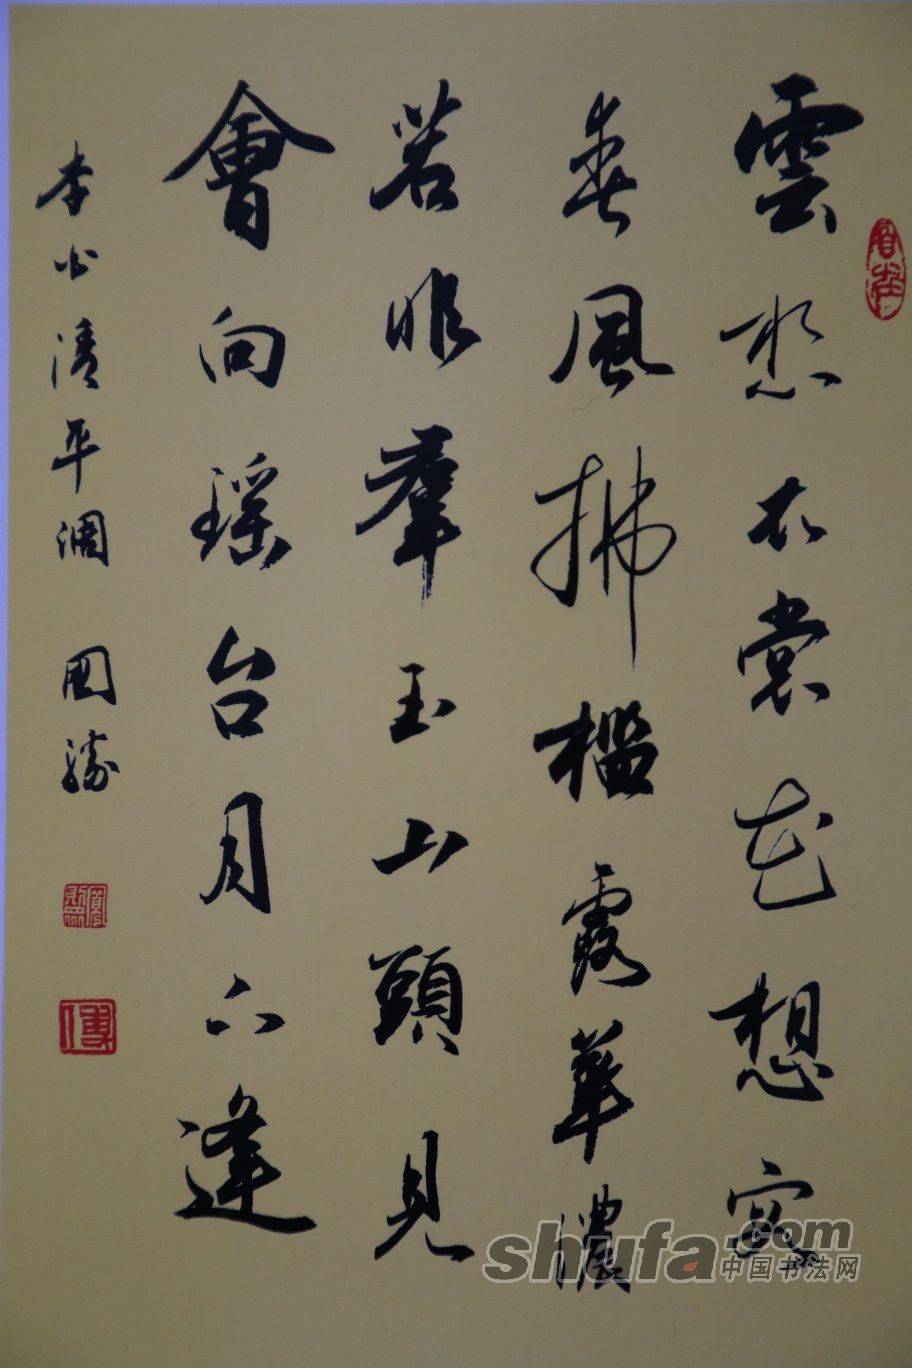 雲想衣裳花想容
春風拂檻露華濃
若非羣玉山頭見
會向瑶台月下逢
李白清平调 國勝
shufa.com
中国书法网